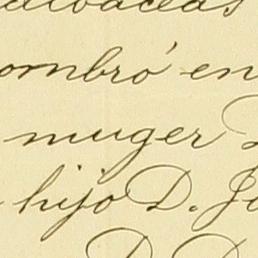 albaceas
ombró en
muger
hijo D. Jo